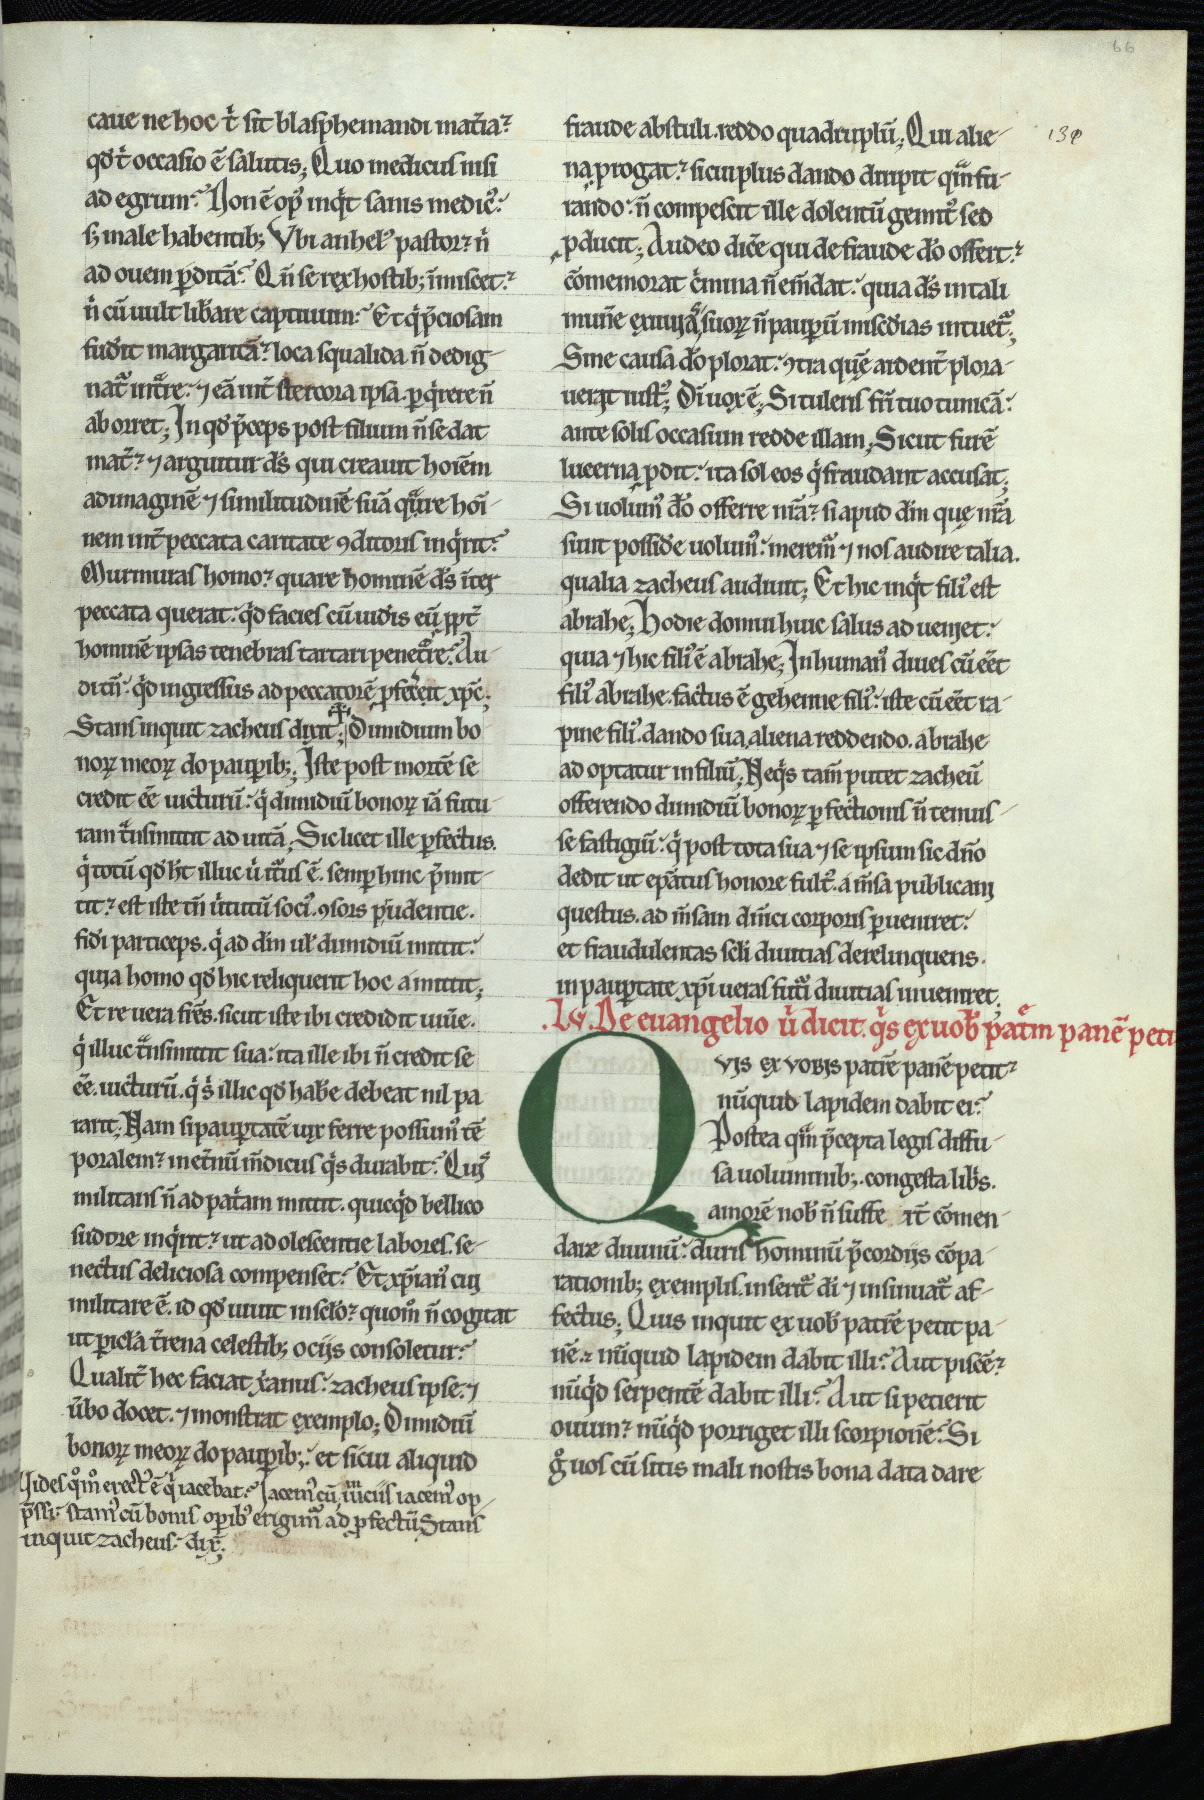 66
139
caue ne hoc t̄ sit blasphemandi mat̄ia?
qđ t̄ occasio ē salutis; Quo medicus nisi
ad egrum? Non ē op᷒ inq̇t sanis medic᷒:
s; male habentib; Vbi anhel᷒ pastor? n̄
ad ouem ꝑditā? Qn̄ se rex hostib; īmiscet?
n̄ cū uult lib̄are captiuum? Et q̇ p̄ciosam
fudit margaritā? loca squalida n̄ dedig-
nat᷑ intᷓre: ⁊ eā int̄ stercora ipsa ꝑq̇rere n̄
aborret; In qđ p̄ceps post filium n̄ se dat
mat̄? ⁊ arguitur d̄s qui creauit hoiēm
ad imaginē ⁊ similitudinē suā qᷓre hoī-
nem int̄ peccata caritate ꝯditoris inq̇rit?
Murmuras homo? quare hominē d̄s īter
peccata querat: q̇d facies cū uidis eū ꝓpt̄
hominē ipsas tenebras tartari penetᷓre? Au-
di tn̄: q̇d ingressus ad peccatorē ꝑfecerit xp̄c;
Stans inquit zacheus dixit; Dimidium bo
noꝝ meoꝝ do pauꝑib; Iste post mortē se
credit eē uicturū: q̇ dimidiū bonoꝝ iā futu-
ram tᷓnsmittit ad uitā, Sic licet ille ꝑfectus.
q̇ totū qđ h̄t illuc ū it᷑us ē. semꝑ hinc p̄mit-
tit? est iste tn̄ ūtutū soci᷒. ꝯsors prudentie.
fidi particeps. q̇ ad dm̄ ul̄ dimidiū mittit:
quia homo qđ hic reliquerit hoc amittit;
Et re uera fr̄es. sicut iste ibi credidit uiūe.
q̇ illuc tᷓnsmittit sua: ita ille ibi n̄ credit se
eē uicturū. q̇ s̄ illic qđ hab̄e debeat nil pa
rarit; Nam si pauꝑtatē uix ferre possum᷒ tē
poralem? in et̄nū m̄dicus q̇s durabit? Quis
militans n̄ ad pat̄am mittit. quicq̇d bellico
sudore inq̇rit? ut adolescentie labores. se-
nectus deliciosa compenset? Et xp̄ian᷒ cui
militare ē. id qđ uiuit in sclo? quom᷒ n̄ cogitat
ut ꝑicl̄a t̄rena celestib; ociis consoletur?
Qualit̄ hec faciat x̄anus: zacheus ipse. ⁊
ūbo docet. ⁊ monstrat exemplo; Dimidiū
bonoꝝ meoꝝ do pauꝑib; et si cui aliquid
Vides q᷒m᷒ erect᷒ ē q̇ iacebat? Iacem᷒ cū in uiciis iacem᷒ op-
p̄ssi: stam᷒ cū bonis oꝑib᷒ erigim᷑ ad ꝑfectū; Stans
inquit zacheus: dix̄;
fraude abstuli. reddo quadruplū; Qui alie-
na ꝑrogat? sicui plus dando diripit qᷓm fu-
rando: n̄ compescit ille dolentū gemit᷒ sed
ꝑducit; Audeo dic̄e qui de fraude dō offert?
cōmemorat c̄mina n̄ em̄dat: quia d̄s in tali
mun̄e exuuia᷒ suoꝝ n̄ pauꝑū mis̄edias intuet᷑;
Sine causa dō plorat: ꝯtra quē ardent̄ plora-
uerat iust᷒; Di uox ē; Si tuleris fr̄i tuo tunicā:
ante solis occasum redde illam; Sicut furē
lucerna ꝓdit: ita sol eos q̇ fraudant accusat;
Si uolum᷒ dō offerre nr̄a? si apud dm̄ que nr̄a
sunt possid̄e uolum᷒: merem᷑ ⁊ nos audire talia.
qualia zacheus audiuit; Et hic inq̇t fili᷒ est
abrahe; Hodie domui huic salus aduenjet:
quia ⁊ hic fili᷒ ē abrahe; Inhuman᷒ diues cū eēt
fili᷒ abrahe. factus ē gehenne fili᷒: iste cū eēt ra-
pine fili᷒. dando sua aliena reddendo. abrahe
adoptatur in filiū; Neq̇s tam̄ putet zacheū
offerendo dimidiū bonoꝝ ꝑfectionis n̄ tenuis-
se fastigiū: q̇ post tota sua ⁊ se ipsum sic dn̄o
dedit ut ep̄atus honore fult᷒. a m̄sa publicani
questus. ad m̄sam dn̄ici corporis ꝑueniret:
et fraudulentas scl̄i diuitias derelinquens.
in pauꝑtate xp̄i ueras fut᷑i diuitias inueniret;
.lv. De euangelio u᷒ dicit. q̇s ex uob᷒ patrem panē peti
Qvis ex vobis patrē panē petit?
nūquid lapidem dabit ei?
Postea qᷓm p̄cepta legis diffu-
sa uoluminib;. congesta lib̄s.
amorē nob᷒ n̄ suffe rt̄ cōmen-
dare diuinū: duris hominū p̄cordiis cōpa-
rationib; exemplis. inserit᷑ di ⁊ insinuat᷑ af-
fectus; Quis inquit ex uob᷒ patrē petit pa-
nē? nūquid lapidem dabit illi? Aut piscē?
nūq̇d serpentē dabit illi? Aut si petierit
ouum? nūq̇d porriget illi scorpionē? Si
g᷒ uos cū sitis mali nostis bona data dare